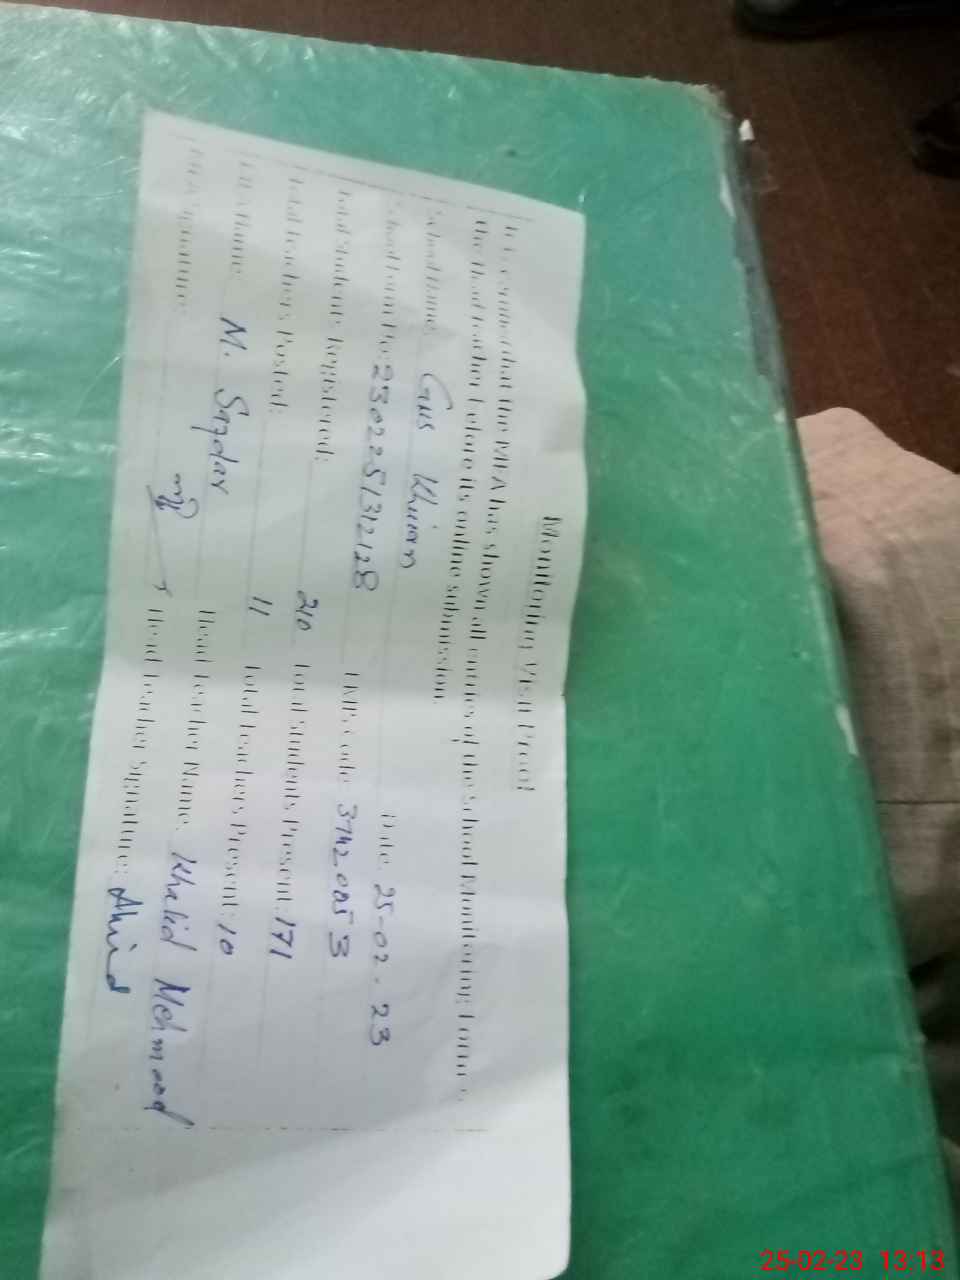 Monitoring Visit Proof
It is certified that the MEA has shown all entries of the School Monitoring Form to
the Head teacher before its online submission.
School Name: GHS Khiian Date: 25-02-23
School Form No: 2302251312128 EMIS Code: 37420053
Total Students Registered: 210 Total Students Present: 171
Total Teachers Posted: 11 Total Teachers Present: 10
MEA Name: M. Safdar Head Teacher Name: Khalid Mehmood
MEA Signature: Head Teacher Signature:
25-02-23 13:13